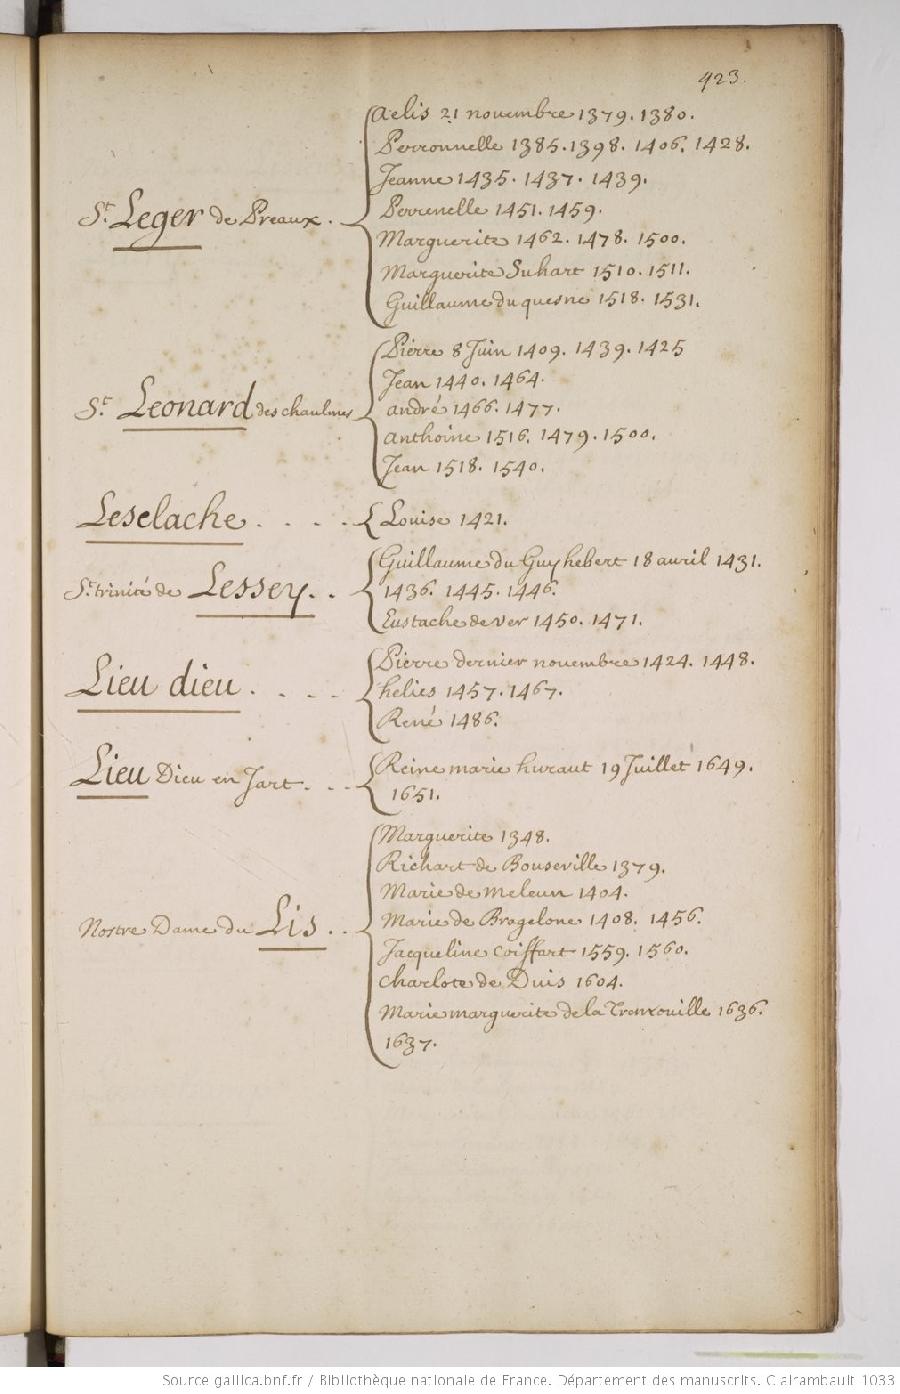 423.
Aelis 21 novembre 1379. 1380.
Perronnelle 1385. 1398. 1406. 1428.
Jeanne 1435. 1437. 1439.
St. Leger de Preaux.
Perrenelle 1451. 1459.
Marguerite 1462. 1478. 1500.
Marguerite Suhart 1510. 1511.
Guillaume du quesne 1518. 1531.
Pierre 8 Juin 1409. 1439. 1425
Jean 1440. 1464.
St. Leonard des chaulmes
andré 1466. 1477.
anthoine 1516. 1479. 1500.
Jean 1518. 1540.
Leselache . . . . Louise 1421.
Guillaume du Guyhebert 18 avril 1431.
St. trinité de Lessey . . 1436. 1445. 1446.
Eustache de ver 1450. 1471.
Pierre dernier novembre 1424. 1448.
Lieu dieu . . . . helies 1457. 1467.
René 1486.
Reine marie huraut 19 Juillet 1649.
Lieu Dieu en Jart . . . 1651.
Marguerite 1348.
Richart de Bouseville 1379.
Marie de meleun 1404.
Nostre Dame du Lis . . Marie de Bragelone 1408. 1456.
Jacqueline coiffart 1559. 1560.
charlote de Duis 1604.
Marie marguerite de la Tremouille 1636.
1637.
Source gallica.bnf.fr / Bibliothèque nationale de France. Département des manuscrits. Clairambault 1033